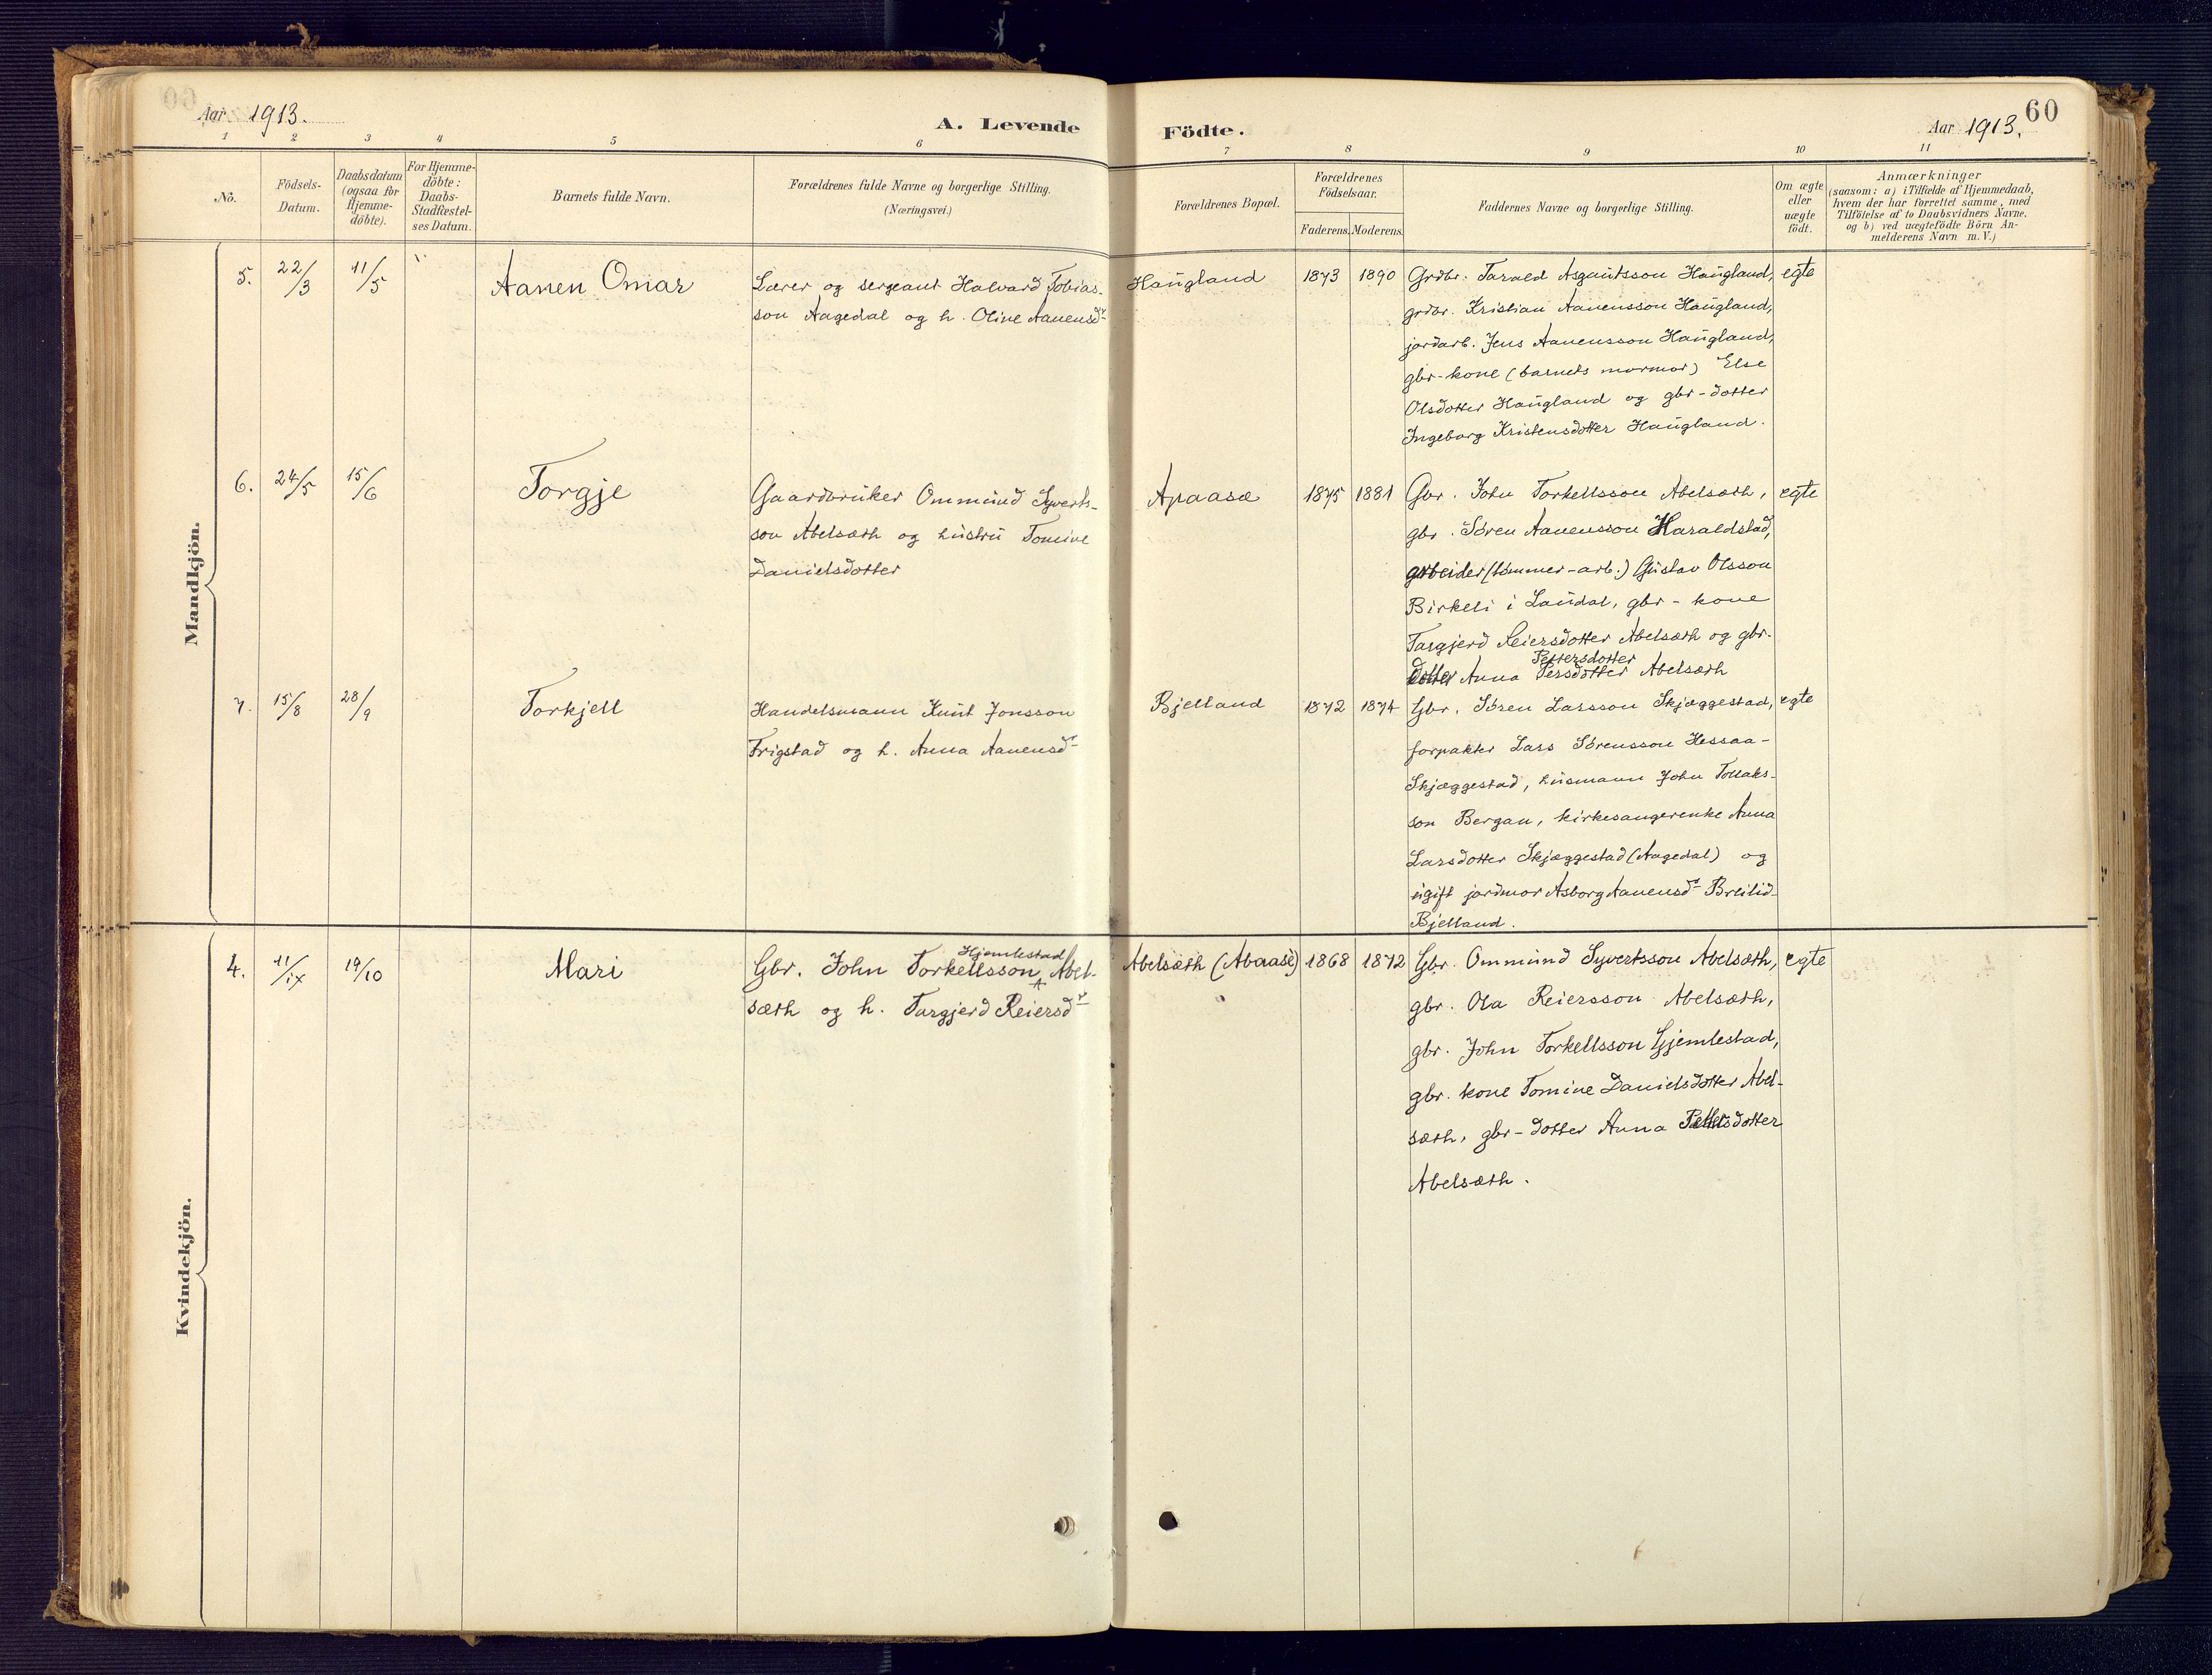 60
Aar 1913.
A. Levende Födte.
Aar 1913.
1 2 3 4 5 6 7 8 9 10 11
No.
Födsels-
Datum.
Daabsdatum
(ogsaa for
Hjemme-
döbte).
For Hjemme-
döbte:
Daabs-
Stadfæstel-
ses Datum.
Barnets fulde Navn.
Forældrenes fulde Navne og borgerlige Stilling.
(Næringsvei.)
Forældrenes Bopæl.
Forældrenes
Födselsaar.
Faderens. Moderens.
Faddernes Navne og borgerlige Stilling.
Om ægte
eller
uægte
födt.
Anmærkninger
(saasom: a) i Tilfælde af Hjemmedaab,
hvem der har forrettet samme, med
Tilföielse af to Daabsvidners Navne,
og b) ved uægtefödte Börn An-
melderens Navn m. V.)
Mandkjön.
5. 22/3 11/5 " Aanen Omar
Lærer og sergeant Halvard Tobias-
son Aagedal og h. Oline Aanensdr
Haugland 1873 1890
Grdbr. Tarald Asgautsson Haugland,
grdbr. Kristian Aanensson Haugland,
jordarb. Jens Aanensson Haugland,
gbr-kone (barnets mormor) Else
Olsdotter Haugland og gbr-dotter
Ingeborg Kristensdotter Haugland.
egte
6. 24/5 15/6 Torgje
Gaardbruker Ommund Syverts-
son Abelsæth og hustru Tomine
Danielsdotter
Apaasæ 1875 1881
Gbr. John Torkellsson Abelsæth,
gbr. Søren Aanensson Haraldstad,
arbeider (tømmer-arb.) Gustav Olsson
Birkeli i Laudal, gbr-kone
Targjerd Reiersdotter Abelsæth og gbr-
Pettersdotter
dotter Anna Persdotter Abelsæth
egte
7. 15/8 28/9 Torkjell
Handelsmann Knut Jonsson
Frigstad og h. Anna Aanensdr
Bjelland 1872 1874
Gbr. Søren Larsson Skjæggestad,
forpakter Lars Sørensson Hessaa-
Skjæggestad, husmann John Tollaks-
son Bergan, kirkesangerenke Anna
Larsdotter Skjæggestad (Aagedal) og
ugift jordmor Asborg Aanensdr Breilid-
Bjelland.
egte
Kvindekjön.
4. 11/ix 19/10 Mari
Hjemlestad
Gbr. John Torkellsson Abel-
sæth og h. Targjerd Reiersdr
Abelsæth (Abaasæ) 1868 1872
Gbr. Ommund Syvertsson Abelsæth,
gbr. Ola Reiersson Abelsæth,
gbr. John Torkellsson Gjemlestad,
gbr. kone Tomine Danielsdotter Abel-
sæth, gbr-dotter Anna Pettersdotter
Abelsæth.
egte